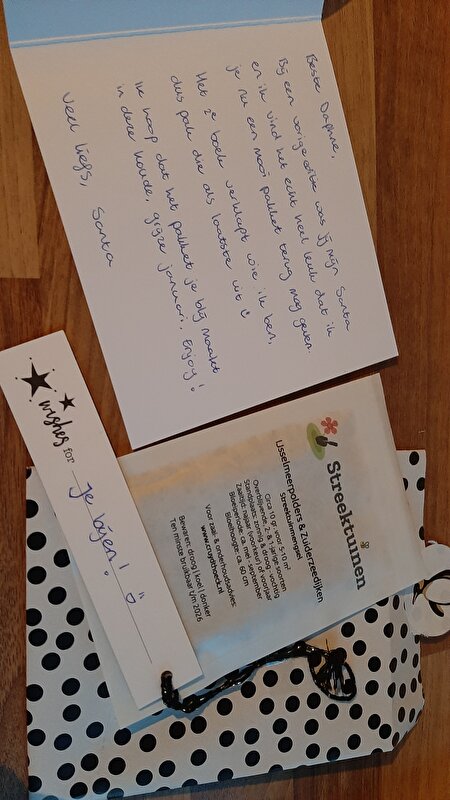 Beste Daphne,
Bij een vorige editie was jij mijn Santa
en ik vind het echt heel leuk dat ik
je nu een mooi pakket terug mag geven.
Het 2e boek verklapt wie ik ben,
dus pak die als laatste uit
Ik hoop dat het pakket je blij maakt
in deze koude, grijze januari. Enjoy!
Veel liefs,
Santa
wishes for
je bijen!
Streektuinen
IJsselmeerpolders & Zuiderzeedijken
Streektuinenmengsel
Circa 10 gr. voor 5-10 m²
Overblijvende, 2- & 1-jarige soorten
Standplaats: zonnig & droog - vochtig
Zaaitijd: najaar (voorkeur) of voorjaar
Bloeiperiode: april - met september
Bloeihoogte: ca. 60 cm
Voor zaai- & onderhoudsadvies:
www.cruydthoeck.nl
Bewaren: droog | koel | donker
Ten minste bruikbaar t/m 2026